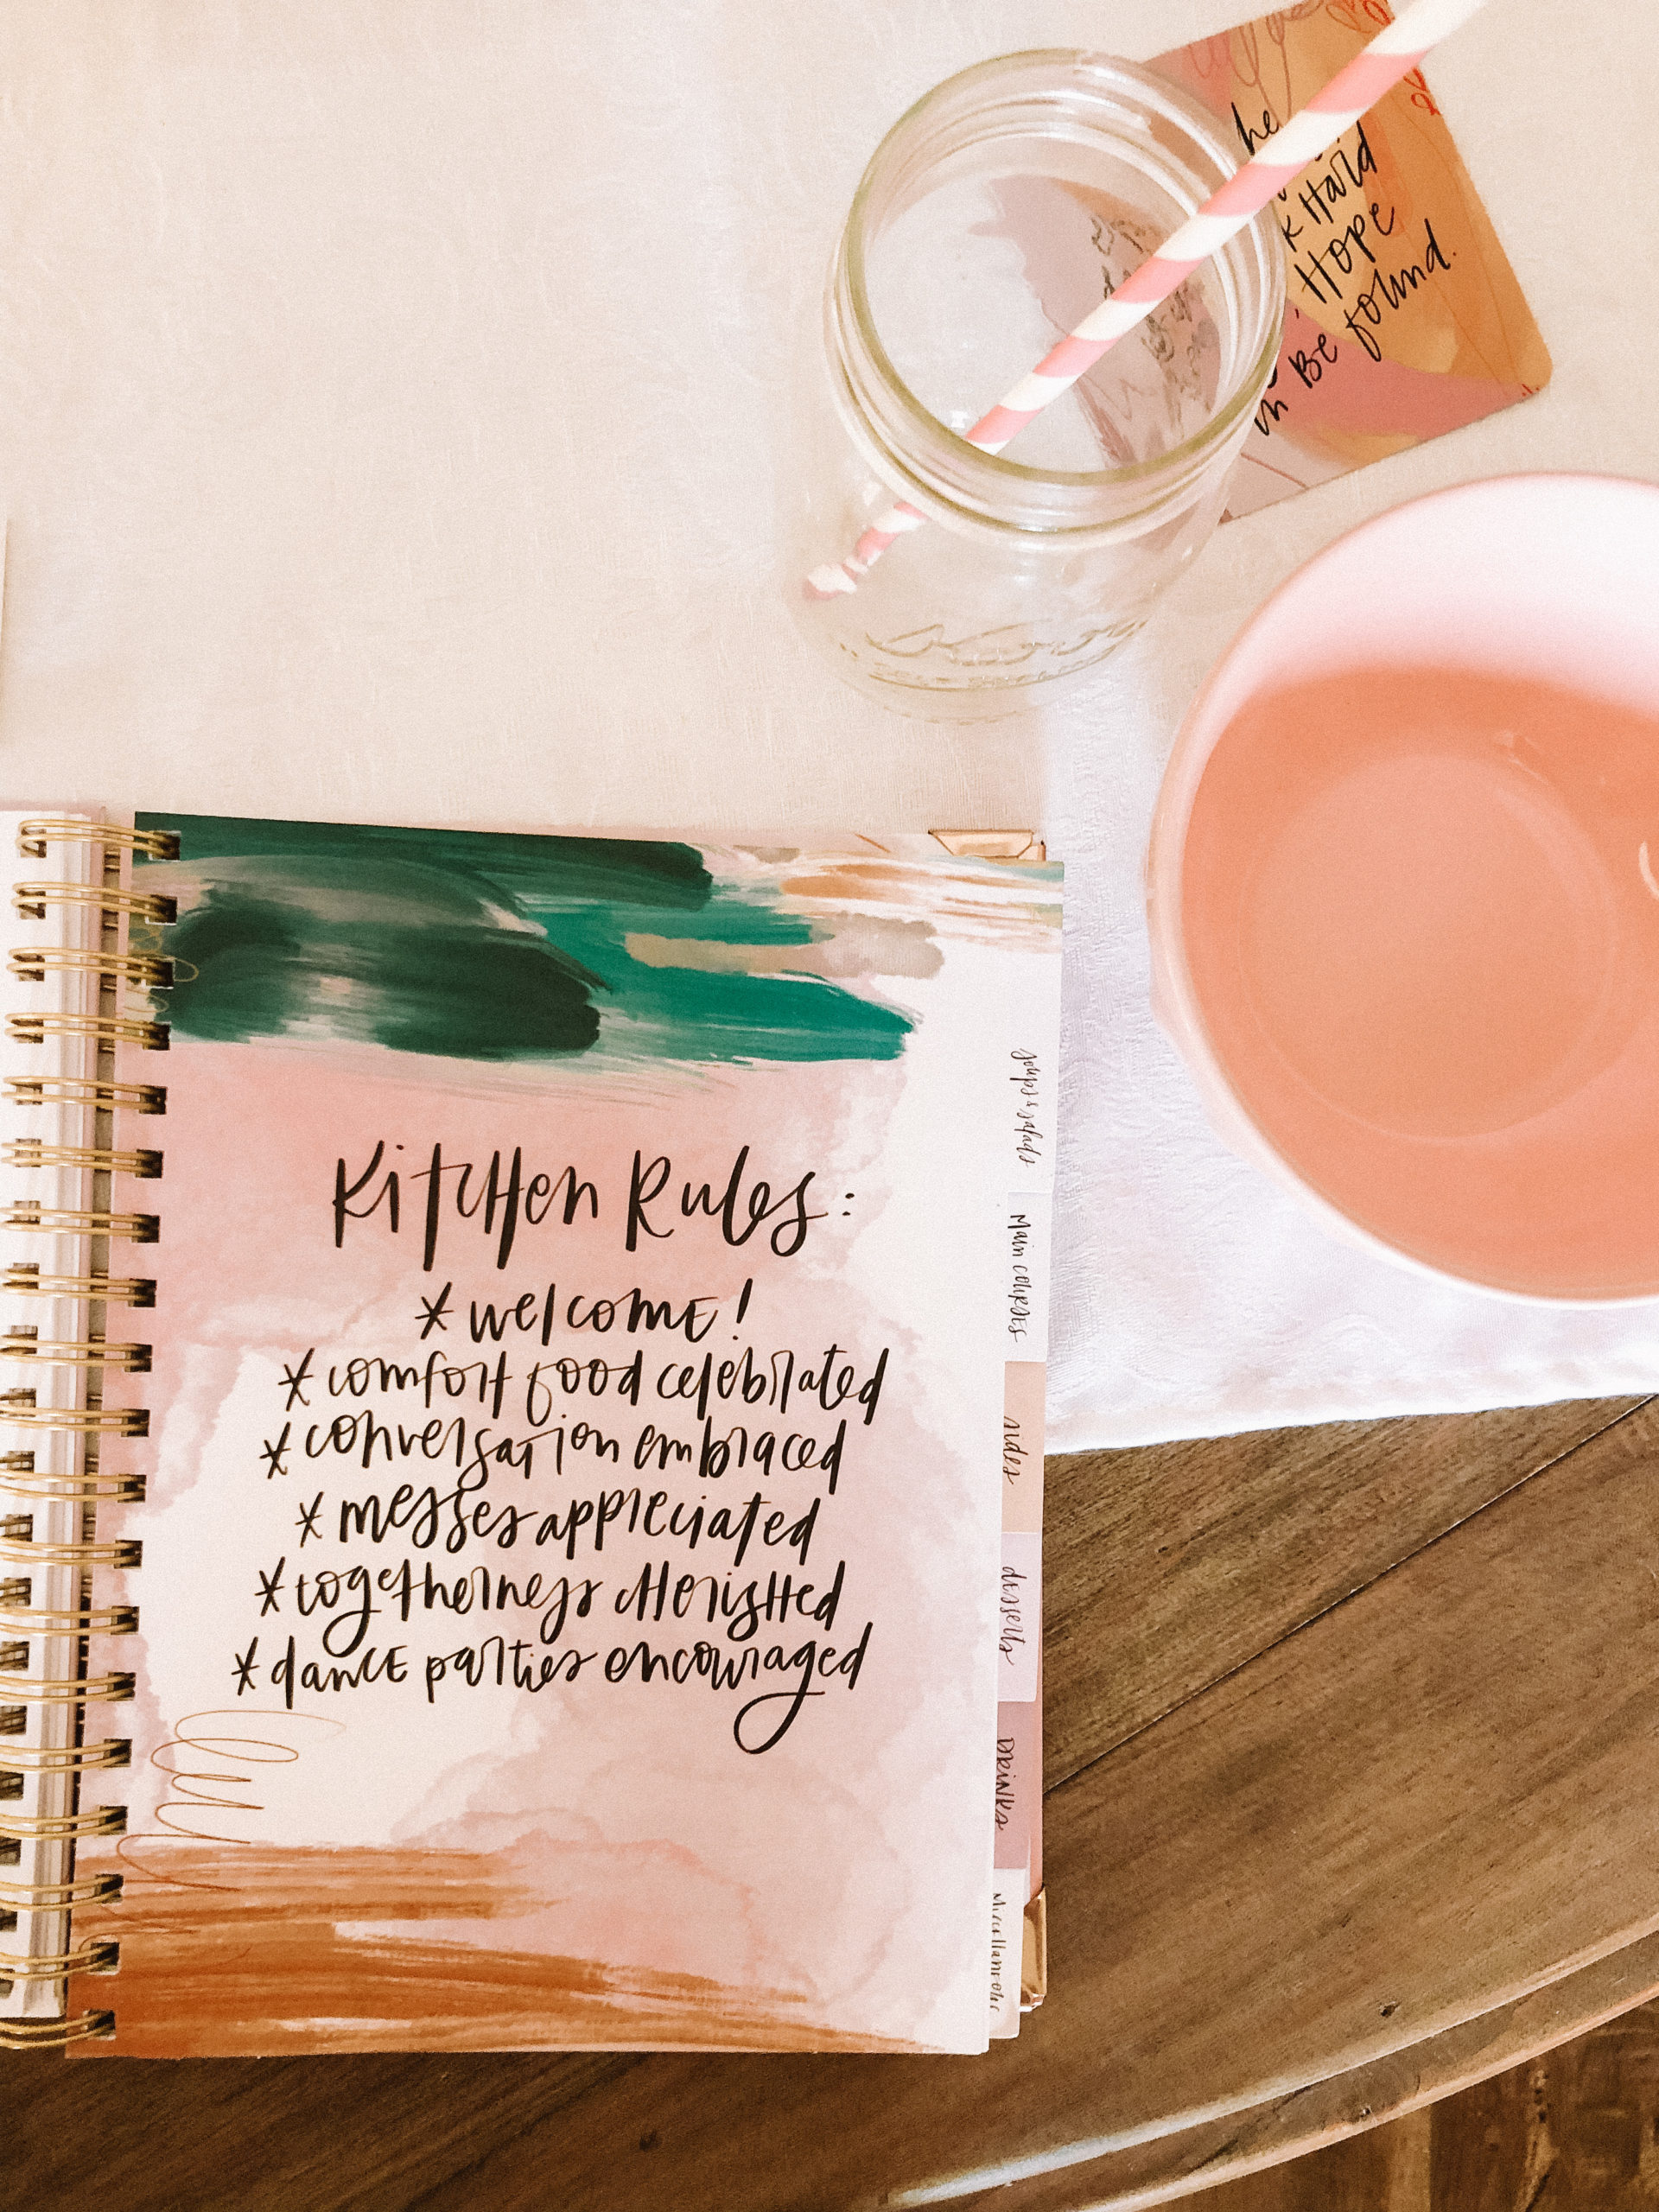 he
k Hard
Hope
Be found.
Kitchen Rules:
* welcome!
* comfort food celebrated
* conversation embraced
* messes appreciated
* togetherness cherished
* dance parties encouraged
soups & salads
Main courses
sides
desserts
DRINKS
Miscellaneous